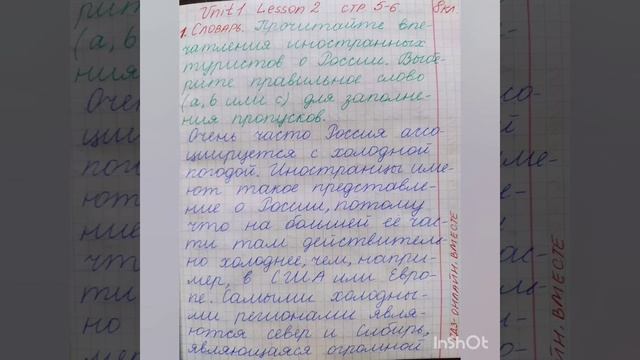 Unit 1 Lesson 2 стр 5-6 8 кл.
1. Словарь. Прочитайте впе-
чатления иностранных
туристов о России. Выбе-
рите правильное слово
(a, b или c) для заполне-
ния пропусков.
Очень часто Россия ассо-
циируется с холодной
погодой. Иностранцы име-
ют такое представле-
ние о России, потому
что на большей ее час-
ти там действитель-
но холоднее, чем, напри-
мер, в США или Евро-
пе. Самыми холодны-
ми регионами явля-
ются север и Сибирь,
являющаяся огромной
ГДЗ-ОНЛАЙН. ВМЕСТЕ
InShot